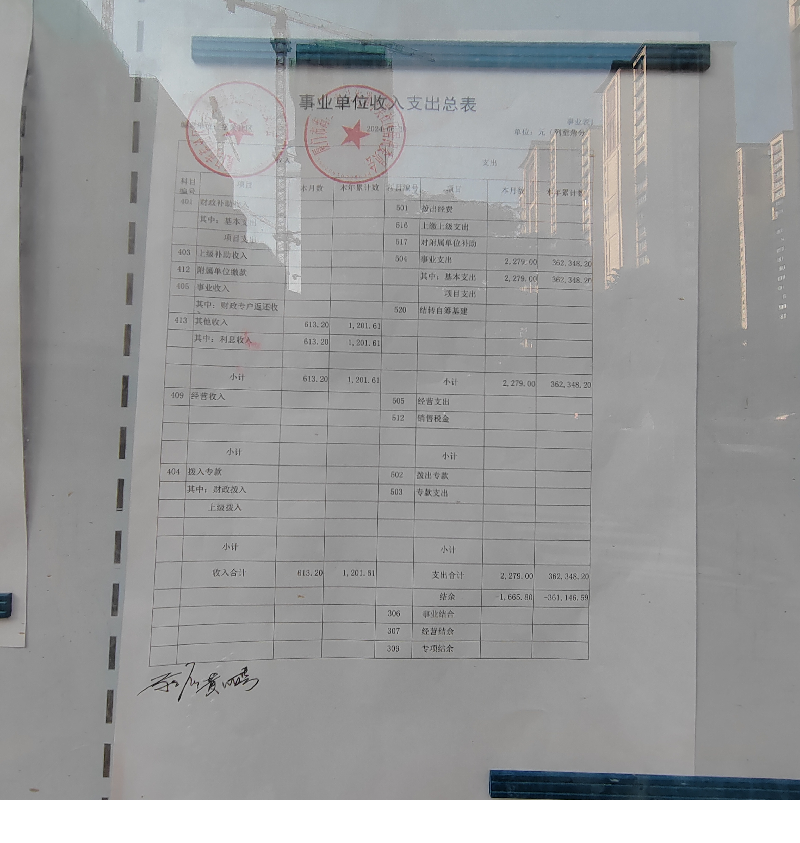 事业单位收入支出总表
事业表1
2024 单位：元（列至角分）
支出
科目编号 项目 本月数 本年累计数 科目编号 项目 本月数 本年累计数
401 财政补助收入 501 拨出经费
其中：基本支 516 上缴上级支出
项目支出 517 对附属单位补助
403 上级补助收入 504 事业支出 2,279.00 362,348.20
412 附属单位缴款 其中：基本支出 2,279.00 362,348.20
405 事业收入 项目支出
其中：财政专户返还收 520 结转自筹基建
413 其他收入 613.20 1,201.61
其中：利息收入 613.20 1,201.61
小计 613.20 1,201.61 小计 2,279.00 362,348.20
409 经营收入 505 经营支出
512 销售税金
小计 小计
404 拨入专款 502 拨出专款
其中：财政拨入 503 专款支出
上级拨入
小计 小计
收入合计 613.20 1,201.61 支出合计 2,279.00 362,348.20
结余 -1,665.80 -361,146.59
306 事业结余
307 经营结余
309 专项结余